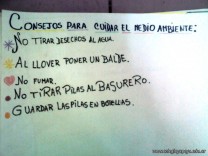 CONSEJOS PARA CUIDAR EL MEDIO AMBIENTE:
NO TIRAR DESECHOS AL AGUA.
AL LLOVER PONER UN BALDE.
NO FUMAR.
NO TIRAR PILAS AL BASURERO.
GUARDAR LAS PILAS EN BOTELLAS.